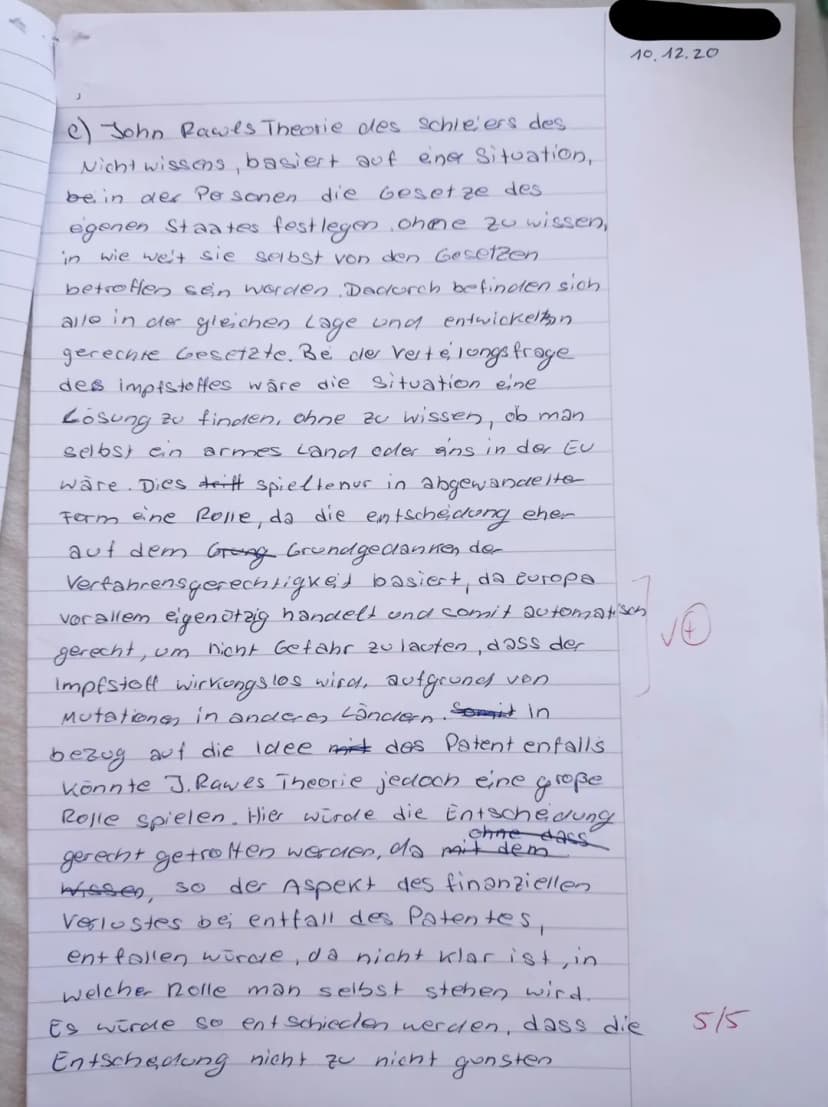 10.12.20
e) John Rawls Theorie des Schleiers des
Nichtwissens, basiert auf einer Situation,
be in der Personen die Gesetze des
eigenen Staates festlegen, ohne zu wissen,
in wie weit sie selbst von den Gesetzen
betroffen sein werden. Dadurch befinden sich
alle in der gleichen Lage und entwickeln
gerechte Gesetzte. Bei der Verteilungsfrage
des Impfstoffes wäre die Situation eine
Lösung zu finden, ohne zu wissen, ob man
selbst ein armes Land oder eins in der EU
wäre. Dies trifft spielt nur in abgewandelter
Form eine Rolle, da die entscheidung eher
auf dem Grung Grundgedanken der
Verfahrensgerechtigkeit basiert, da Europa
vorallem eigenützig handelt und somit automatisch
gerecht, um nicht Gefahr zu laufen, dass der
Impfstoff wirkungslos wird, aufgrund von
Mutationen in anderen Ländern. Somit In
bezug auf die Idee mit des Patent enfalls
könnte J. Rawls Theorie jedoch eine große
Rolle spielen. Hier würde die Entscheidung
ohne dass
gerecht getroffen werden, da mit dem
Wissen, so der Aspekt des finanziellen
Verlustes bei entfall des Patentes,
entfallen würde, da nicht klar ist, in
welcher Rolle man selbst stehen wird.
Es würde so entschieden werden, dass die 5/5
Entscheidung nicht zu nicht gunsten